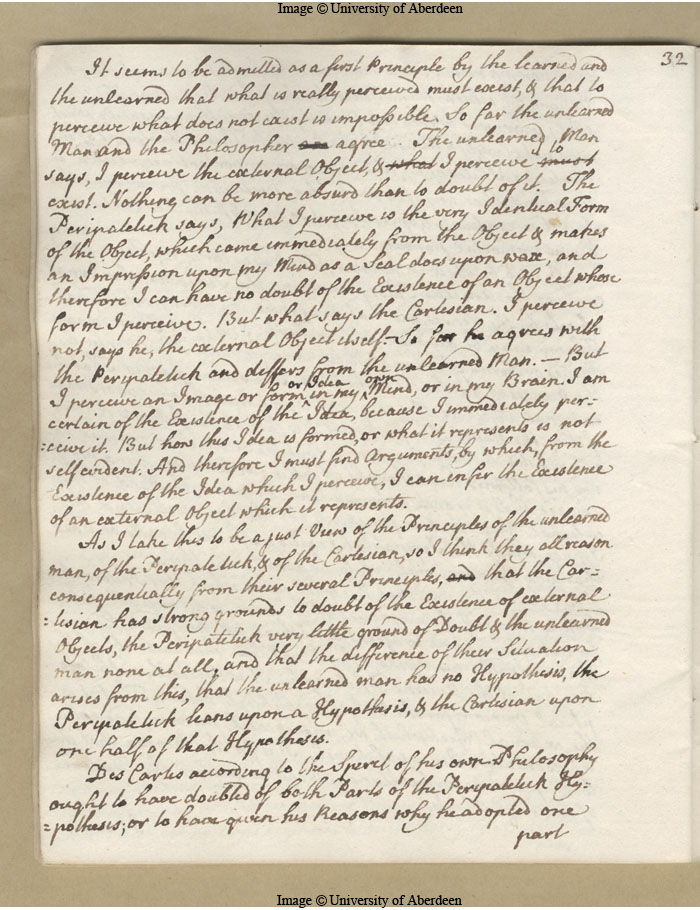 Image © University of Aberdeen
32
It seems to be admitted as a first Principle by the learned and
the unlearned that what is really perceived must exist, & that to
perceive what does not exist is impossible. So far the unlearned
Man and the Philosopher agree. The unlearned Man
says, I perceive the external Object, & what I perceive to must
exist. Nothing can be more absurd than to doubt of it. The
Peripatetick says, What I perceive is the very Identical Form
of the Object, which came immediately from the Object & makes
an Impression upon my Mind as a Seal does upon wax, and
therefore I can have no doubt of the Existence of an Object whose
form I perceive. But what says the Cartesian. I perceive
not, says he, the external Object itself. So far he agrees with
the Peripatetick and differs from the unlearned Man. — But
I perceive an Image or form or Idea in my own Mind, or in my Brain. I am
certain of the Existence of the Idea, because I immediately per-
=ceive it. But how this Idea is formed, or what it represents is not
self evident. And therefore I must find Arguments, by which, from the
Existence of the Idea which I perceive, I can infer the Existence
of an external Object which it represents.
As I take this to be a just View of the Principles of the unlearned
man, of the Peripatetick, & of the Cartesian, so I think they all reason
consequentially from their several Principles, and that the Car=
=tisian has strong grounds to doubt of the Existence of external
Objects, the Peripatetick very little ground of Doubt & the unlearned
man none at all, and that the difference of their Situation
arises from this, that the unlearned man has no Hypothesis, the
Peripatetick leans upon a Hypothesis, & the Cartesian upon
one half of that Hypothesis.
Des Cartes according to the Spirit of his own Philosophy
ought to have doubted of both Parts of the Peripatetick Hy=
=pothesis; or to have given his Reasons why he adopted one
part
Image © University of Aberdeen